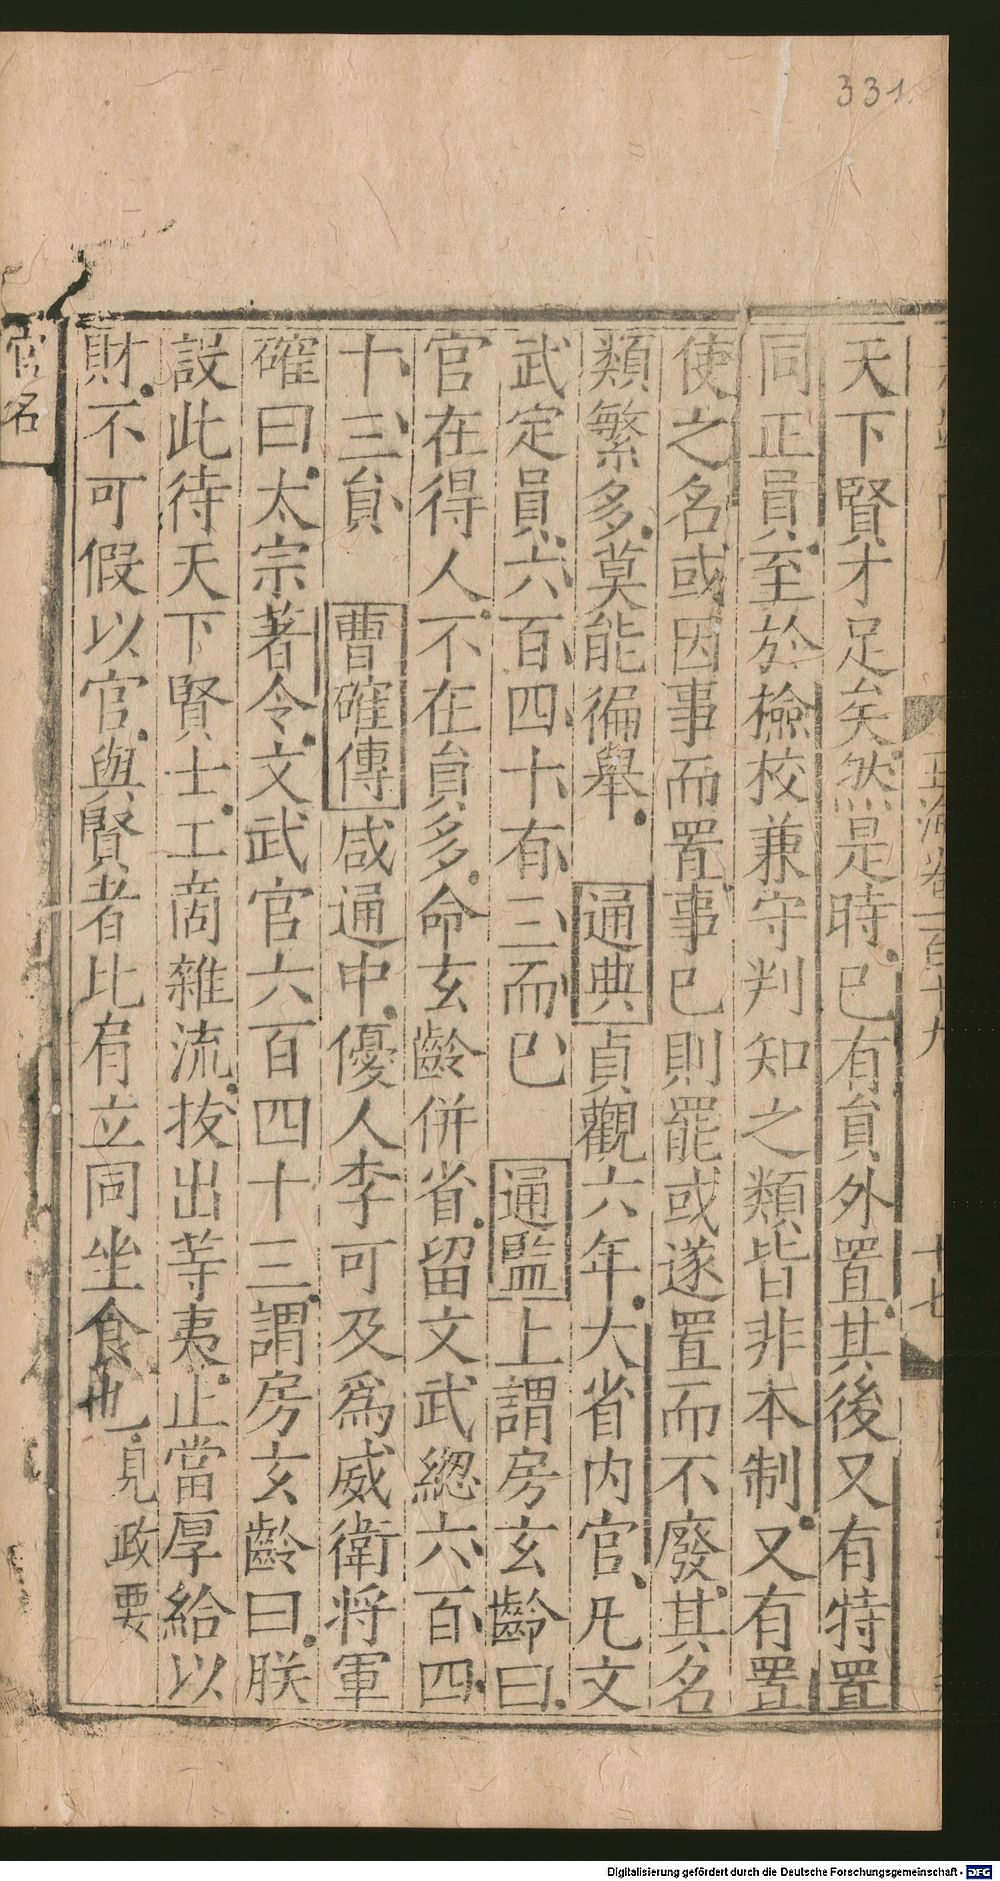 331
玉海卷一百十九
十七
天下賢才足矣然是時已有負外置其後又有特置
同正員至於檢校兼守判知之類皆非本制又有置
使之名或因事而置事已則罷或遂置而不廢其名
類繁多莫能徧舉 通典貞觀六年大省内官凡文
武定員六百四十有三而已 通監上謂房玄齡曰
官在得人不在貟多命玄齡併省留文武緫六百四
十三貟 曹確傳咸通中優人李可及爲威衛将軍
確曰太宗著令文武官六百四十三謂房玄齡曰朕
設此待天下賢士工商雜流抜出等夷止當厚給以
財不可假以官與賢者比肩立同坐食也見政要
官名
Digitalisierung gefördert durch die Deutsche Forschungsgemeinschaft - DFG